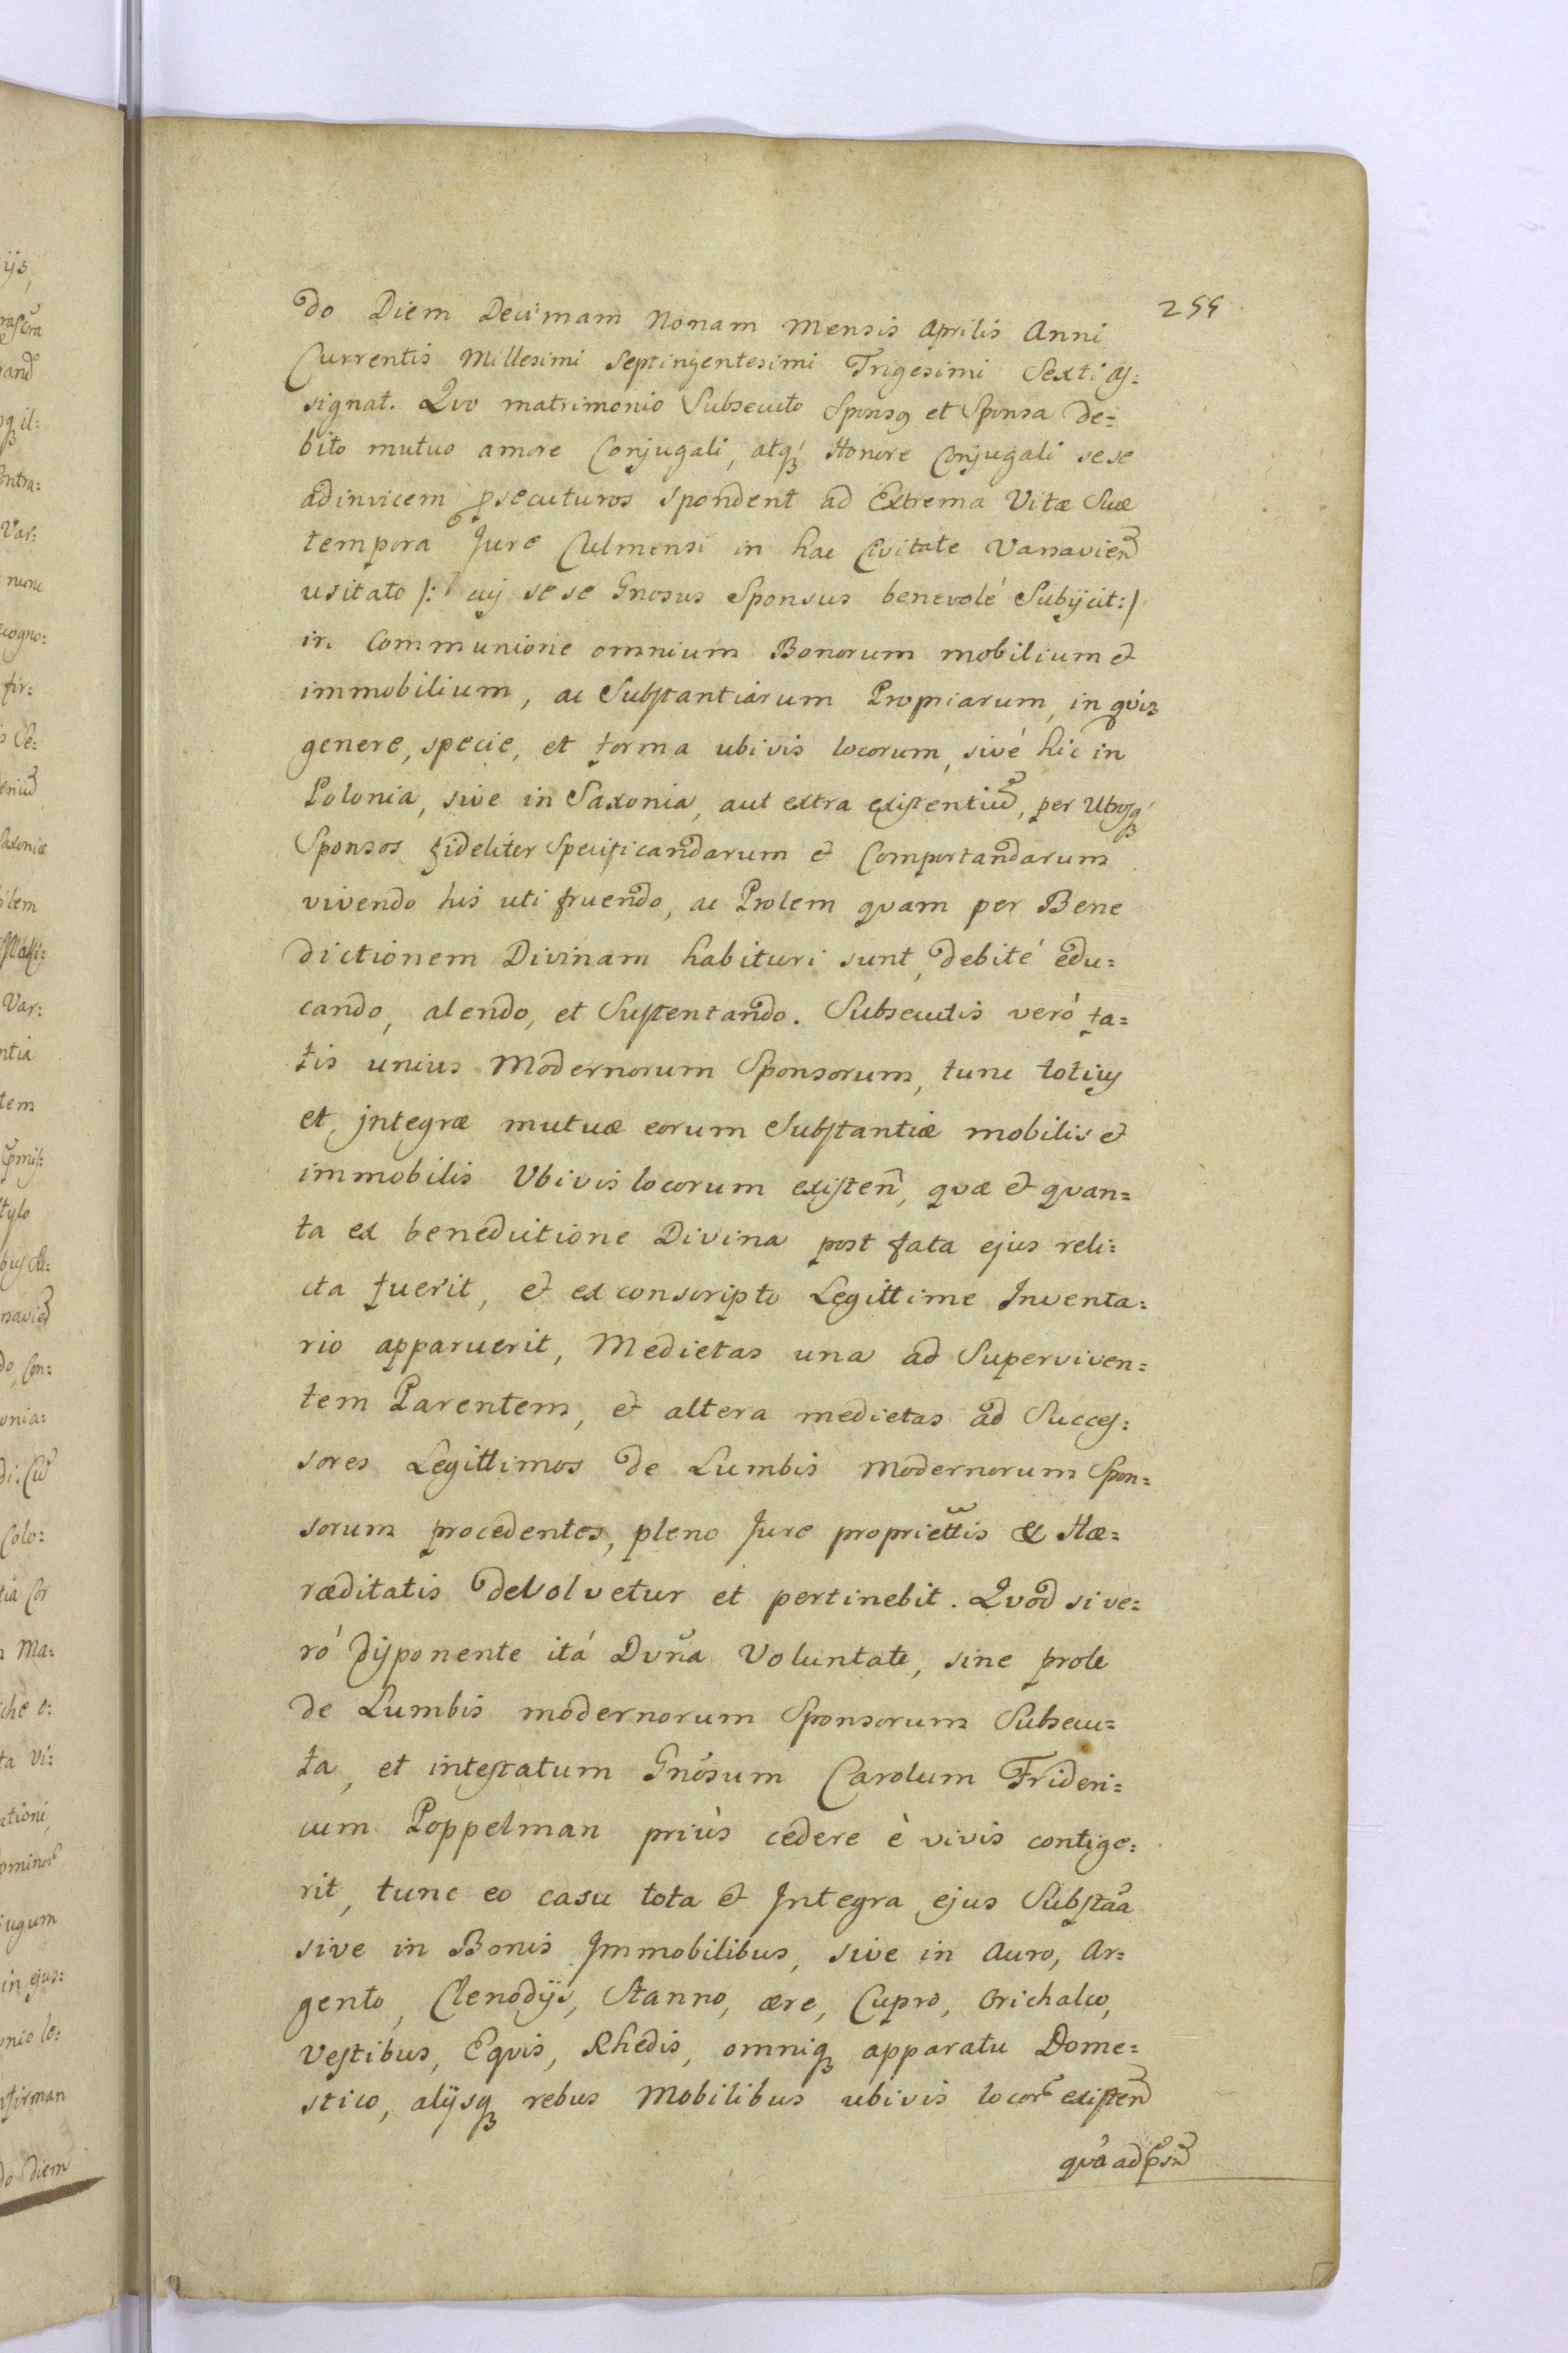 259
do Diem Decimam Nonam Mensis Aprilis Anni
Currentis Millesimi Septingentesimi Trigesimi Sexti as:
signat. Quo matrimonio Subsecuto Sponsꝯ et Sponsa de=
bito mutuo amore Conjugali, atqꝫ Honore Conjugali sese
adinvicem ꝓsecuturos spondent ad Extrema Vitæ Suæ
tempora Jure Culmensi in hac Civitate Varsavień
usitato /: cuj sese Gnosus Sponsus benevolé Subijcit:/
in Communione omnium Bonorum mobilium et
immobilium, ac Substantiarum Propriarum, in qvis
genere, specie, et forma ubivis locorum, sivé hic in
Polonia, sive in Saxonia, aut extra existentiũ, per Utrosqꝫ
Sponsos fideliter Specificandarum et Comportandarum
vivendo his uti fruendo, ac Prolem qvam per Bene
dictionem Divinam habituri sunt, debité edu=
cando, alendo, et Sustentando. Subsecutis veró fa=
tis unius Modernorum Sponsorum, tunc totius
et integræ mutuæ eorum Substantiæ mobilis et
immobilis Ubivis locorum existeñ, qvæ et qvan=
ta ex benedictione Divina post fata ejus reli=
cta fuerit, et ex conscripto Legittime Inventa=
rio apparuerit, Medietas una ad Superviven=
tem Parentem, et altera medietas ad Succes=
sores Legittimos de Lumbis Modernorum Spon=
sorum procedentes, pleno Jure propriettis & Hæ=
ræditatis devolvetur et pertinebit. Qvod si ve=
ró disponente itá Dvña Voluntate, sine prole
de Lumbis modernorum Sponsorum Subsecu=
ta, et intestatum Gnosum Carolum Frideri=
cum Poppelman priùs cedere è vivis contige=
rit, tunc eo casu tota et Integra ejus Substãa
sive in Bonis Immobilibus, sive in Auro, Ar=
gento, Clenodijs, Stanno, ære, Cupro, Orichalco,
Vestibus, Eqvis, Rhedis, omniqꝫ apparatu Dome=
stico, alijsqꝫ rebus Mobilibus ubivis locor̃ existeñ
qvá ad p̃sñ